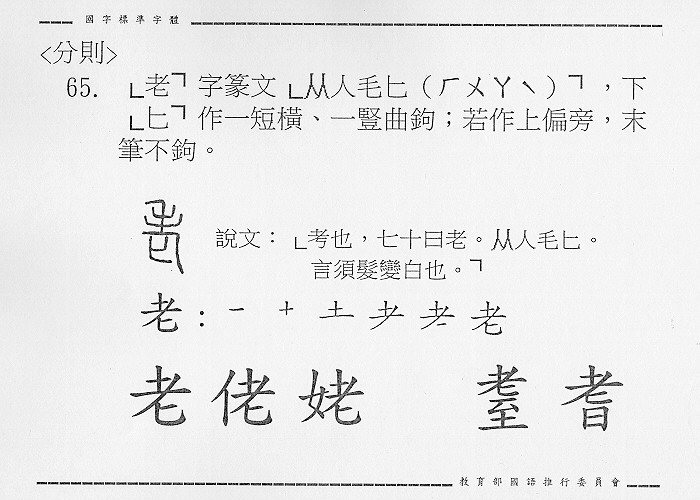 國字標準字體
<分則>
65. ﹂老﹁字篆文﹂从人毛匕(ㄏㄨㄚˋ)﹁,下
﹂匕﹁作一短橫、一豎曲鉤;若作上偏旁,末
筆不鉤。
說文:﹂考也,七十曰老。从人毛匕。
言須髮變白也。﹁
老: 一 十 土 耂 老
老佬姥 耋耆
教育部國語推行委員會